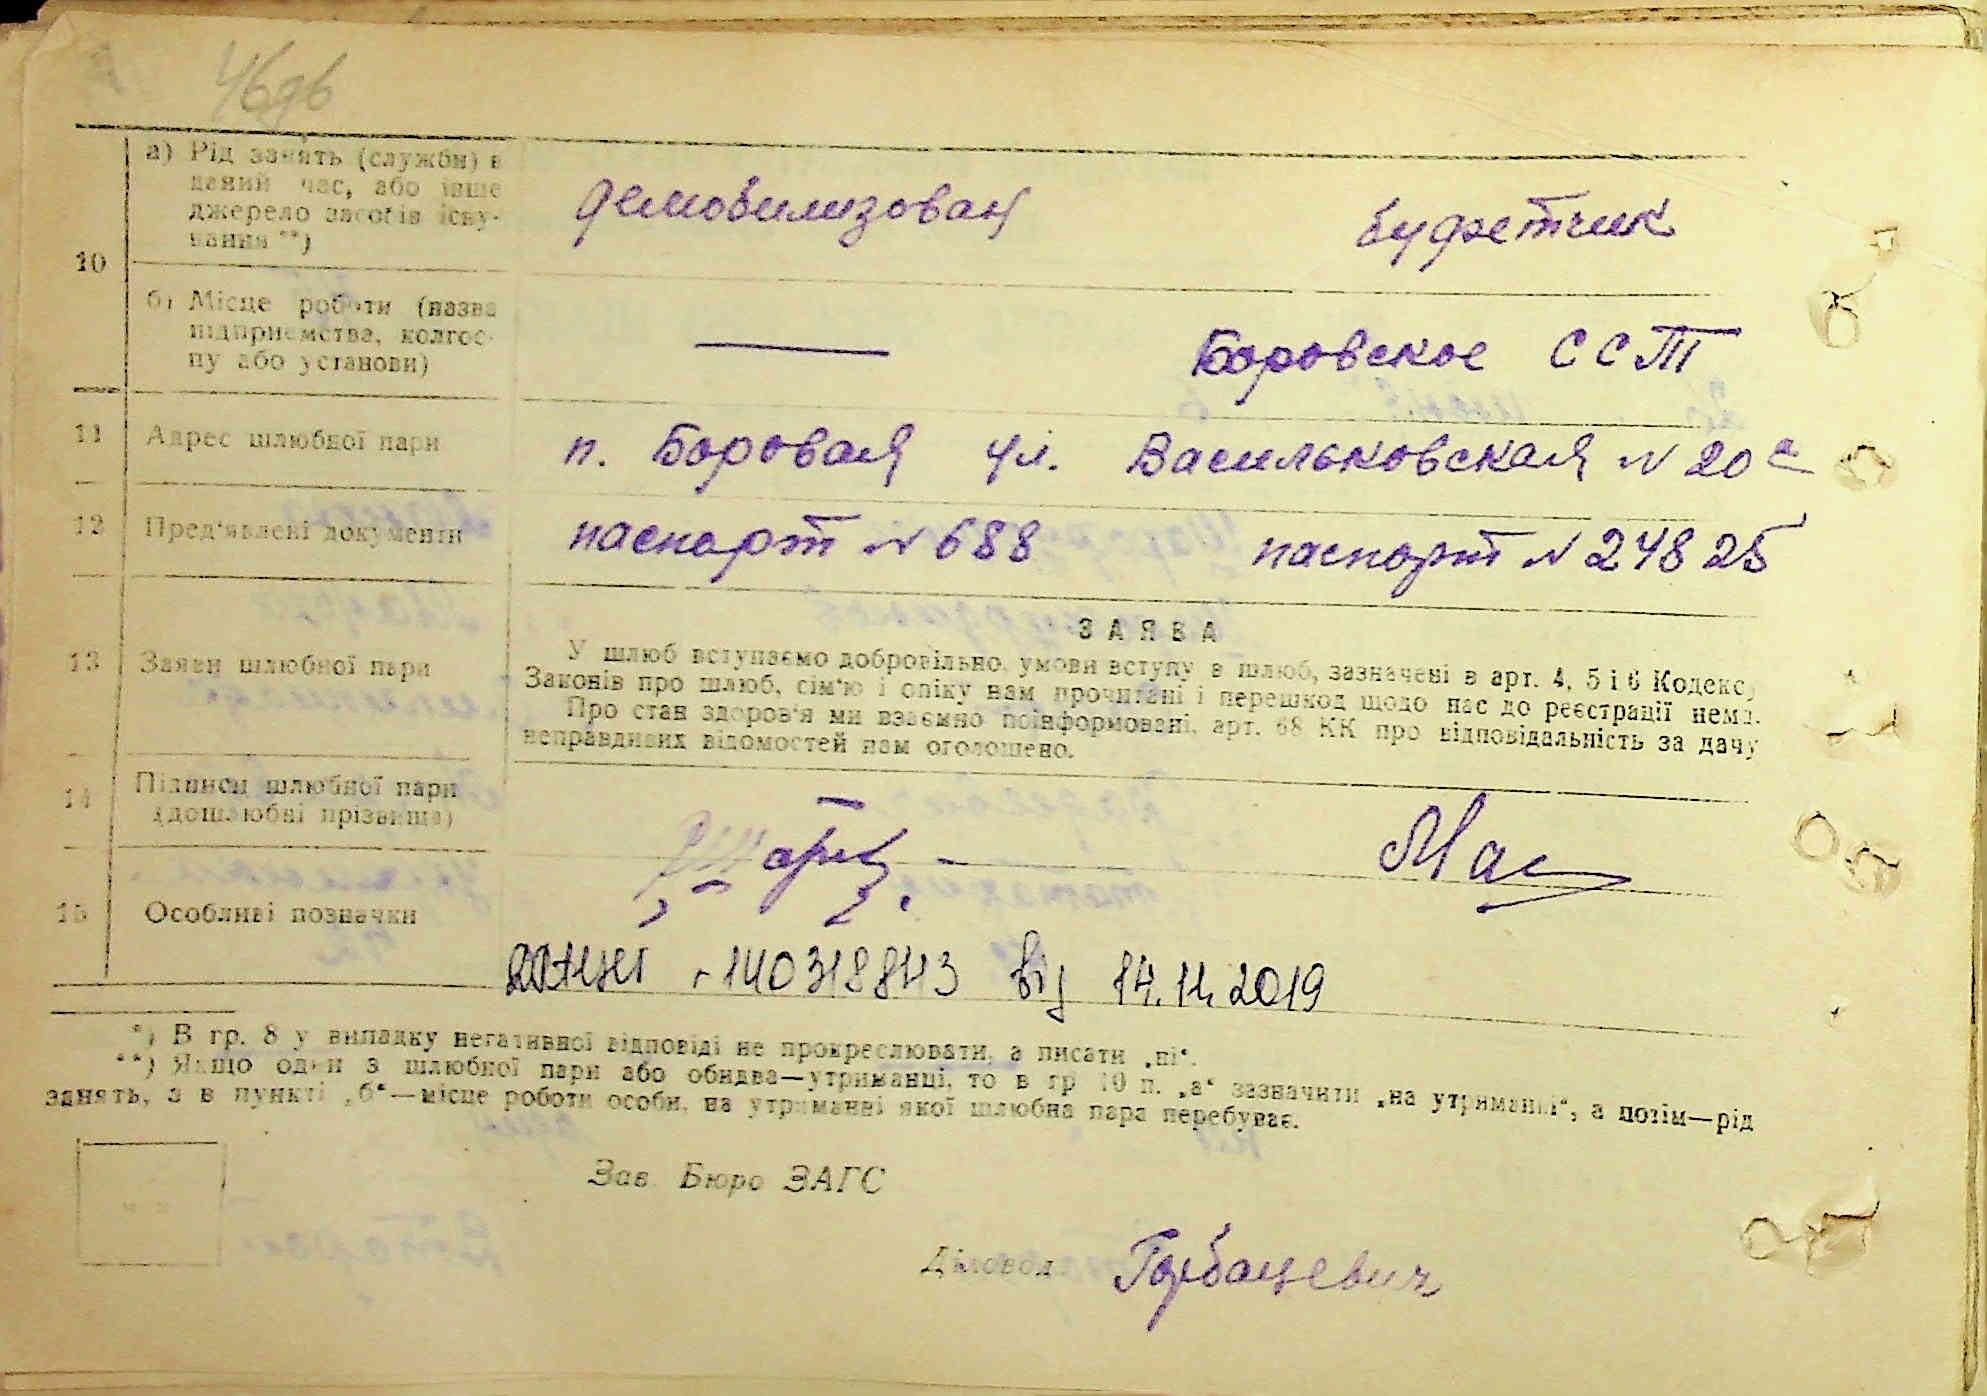 46 зв
10
а) Рід занять (служби) в
даний час, або інше
джерело засобів існу-
вання **)
демобилизован
буфетчик
б) Місце роботи (назва
підприємства, колгос-
пу або установи)
Боровское ССТ
11
Адрес шлюбної пари
п. Боровая ул. Васильковская № 20 а
12
Пред'явлені документи
паспорт № 688
паспорт № 24825
13
Заяви шлюбної пари
ЗАЯВА
У шлюб вступаємо добровільно, умови вступу в шлюб, зазначені в арт. 4, 5 і 6 Кодексу
Законів про шлюб, сім'ю і опіку нам прочитані і перешкод щодо нас до реєстрації нема.
Про стан здоров'я ми взаємно поінформовані, арт. 68 КК про відповідальність за дачу
неправдивих відомостей нам оголошено.
14
Підписи шлюбної пари
(дошлюбні прізвища)
15
Особливі позначки
140318843 від 14.11.2019
*) В гр. 8 у випадку негативної відповіді не прокреслювати, а писати „ні“.
**) Якщо один з шлюбної пари або обидва—утриманці, то в гр 10 п. „а“ зазначити „на утриманні“, а потім—рід
занять, а в пункті „б“—місце роботи особи, на утриманні якої шлюбна пара перебуває.
Зав. Бюро ЗАГС
Діловод Горбацевич